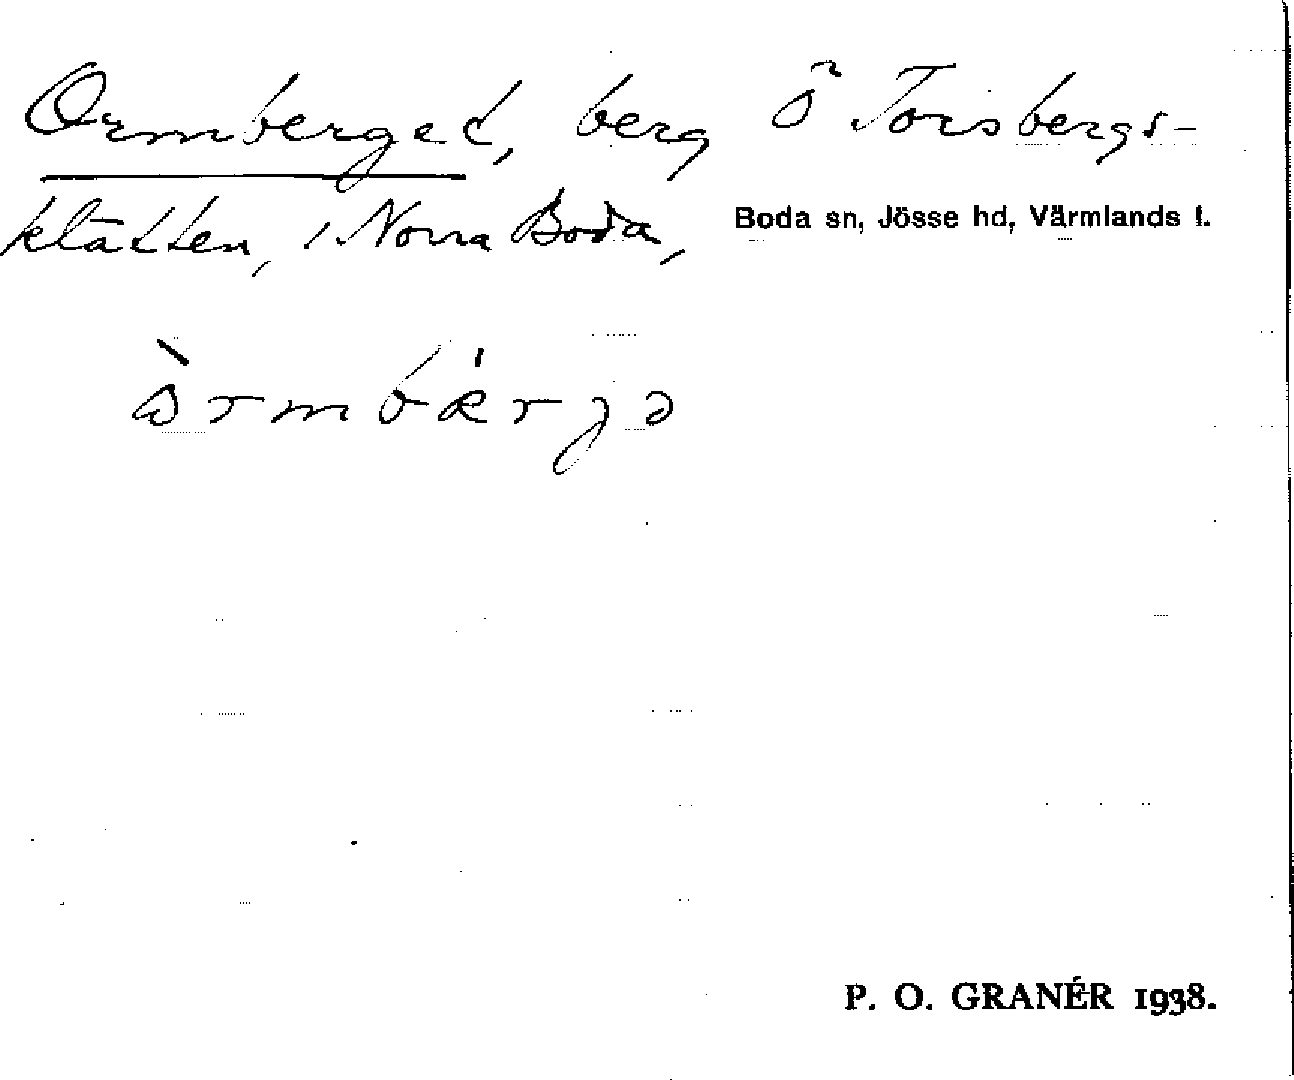 Ormberget, berg Ö Torsbergs-
klätten, i Norra Boda,
Boda sn, Jösse hd, Värmlands l.
P. O. GRANÉR 1938.